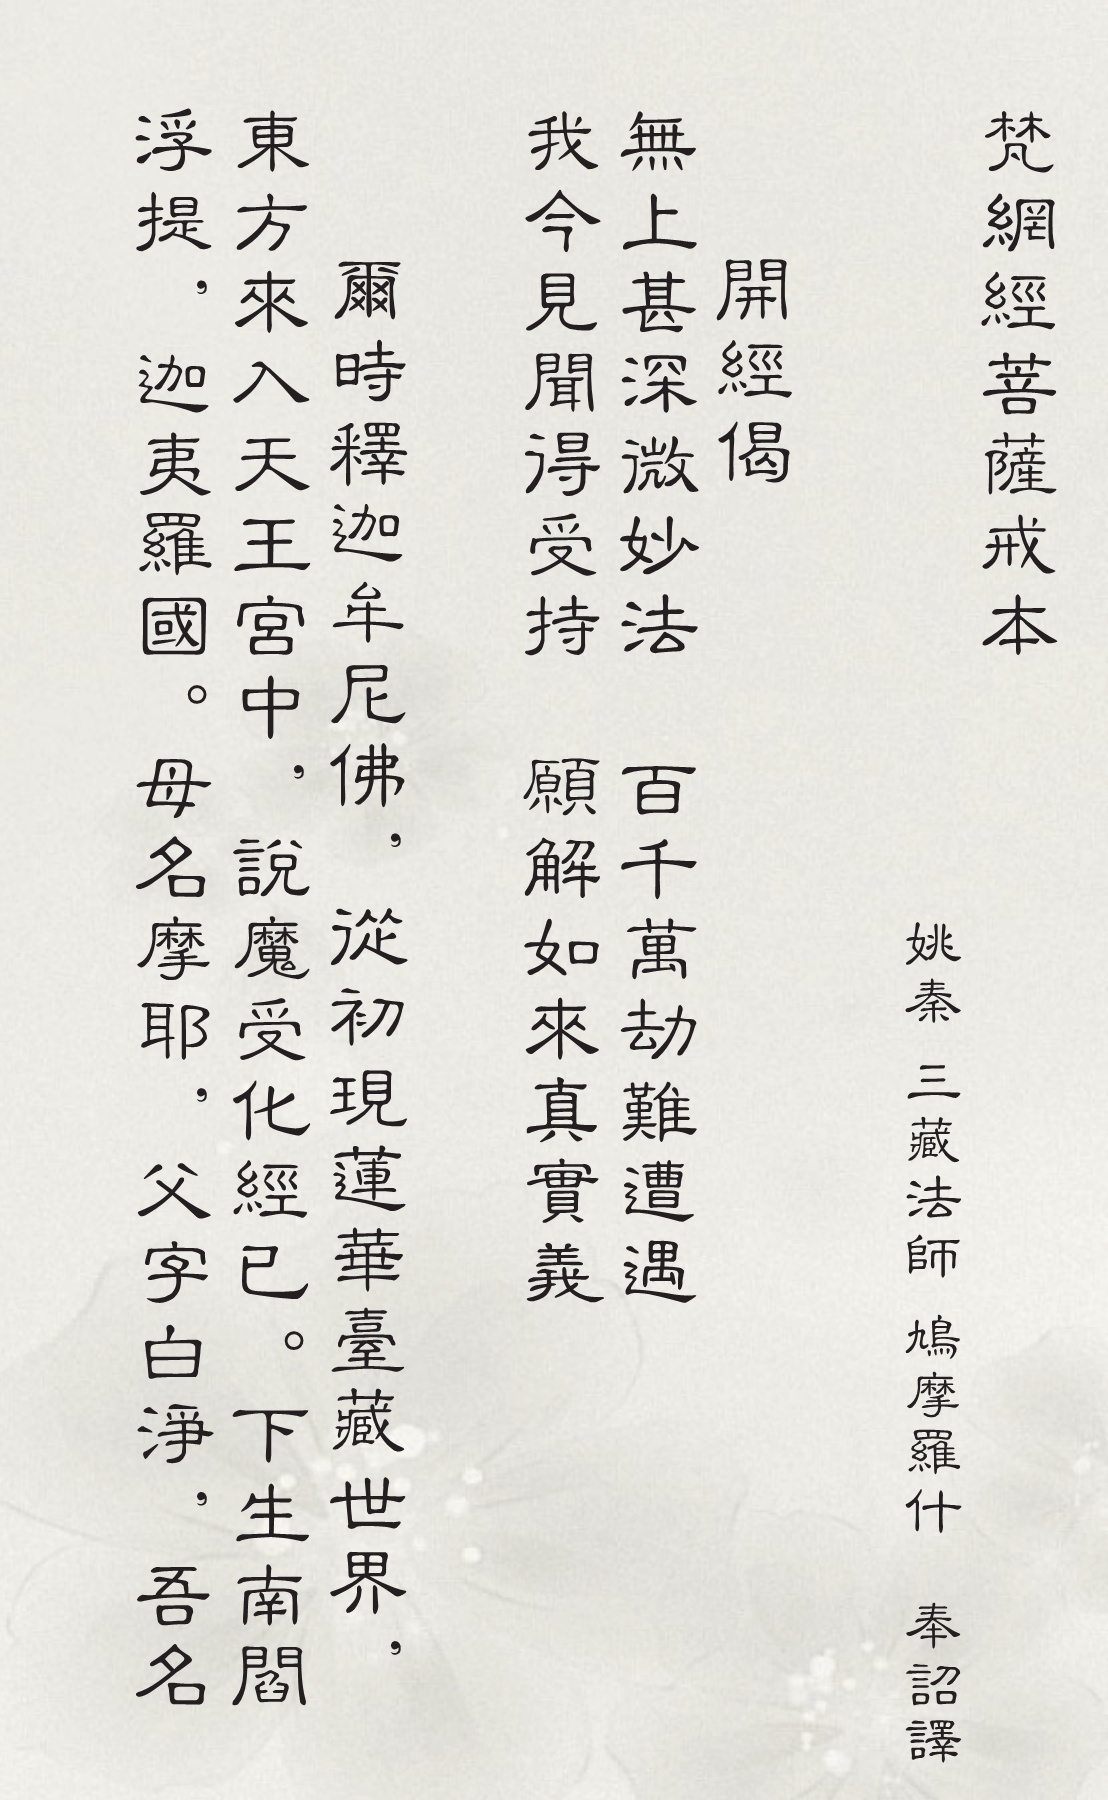 梵網經菩薩戒本
姚秦 三藏法師 鳩摩羅什 奉詔譯
開經偈
無上甚深微妙法 百千萬劫難遭遇
我今見聞得受持 願解如來真實義
爾時釋迦牟尼佛，從初現蓮華臺藏世界，
東方來入天王宮中，說魔受化經已。下生南閻
浮提，迦夷羅國。母名摩耶，父字白淨，吾名